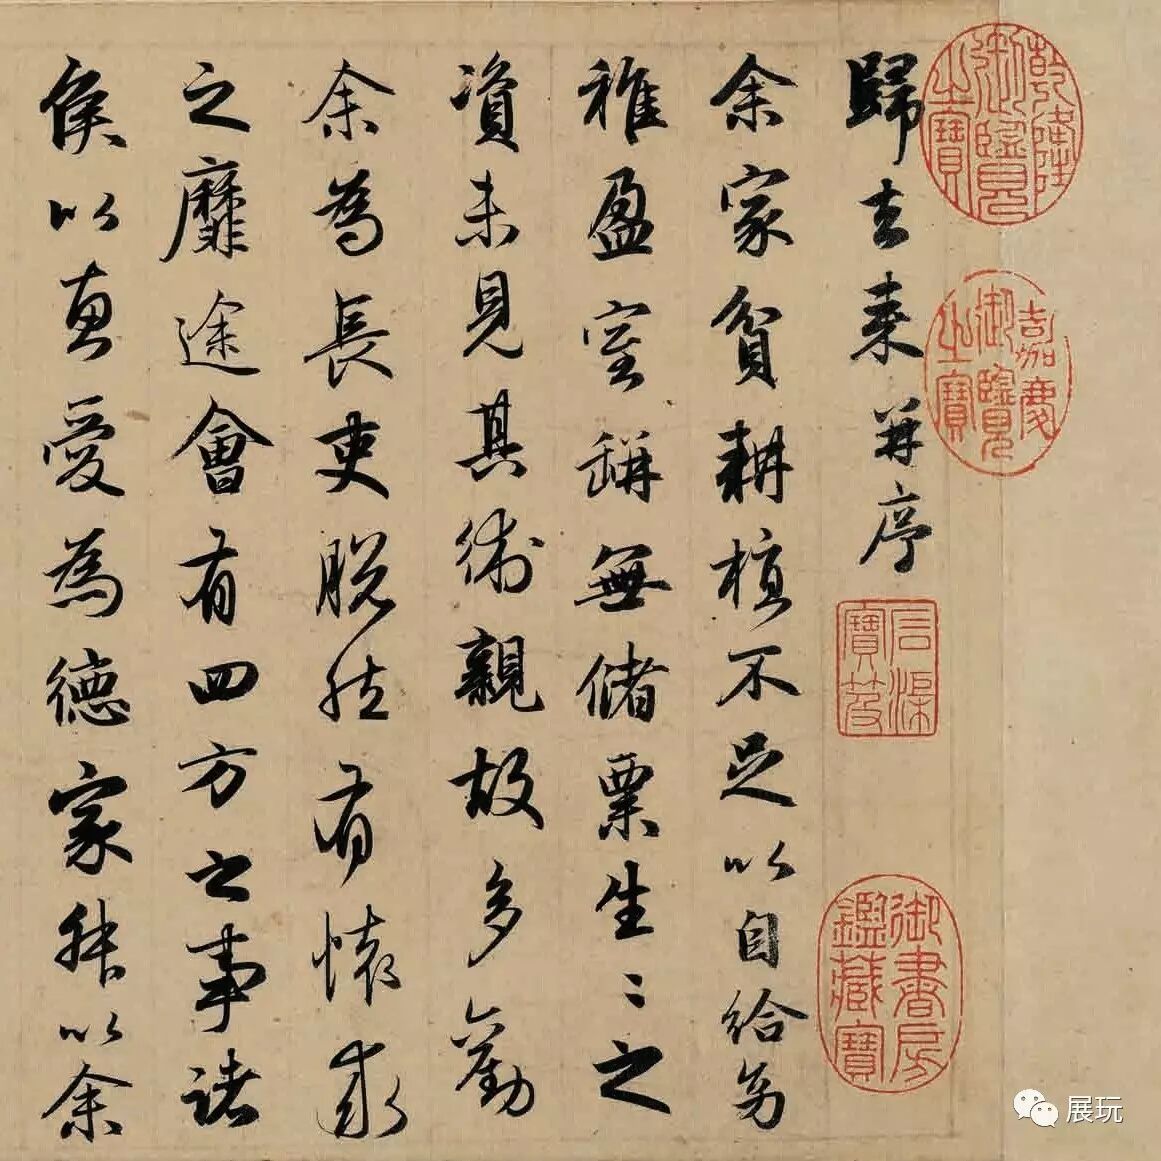 乾隆御覽之寶
嘉慶御覽之寶
歸去来并序
石渠寶笈
御書房鑑藏寶
余家貧耕植不足以自給幼
稚盈室缾無儲粟生〻之
資未見其術親故多勸
余為長吏脫然有懷求
之靡途會有四方之事諸
侯以惠愛為德家叔以余
展玩